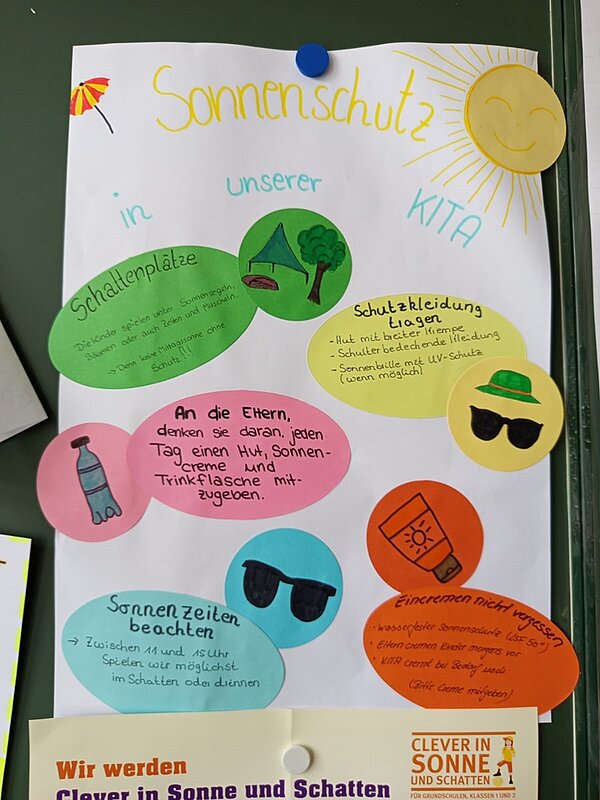 Sonnenschutz
in unserer KITA
Schattenplätze
Die Kinder spielen unter Sonnensegeln,
Bäumen oder auch Zelten und Muscheln.
→ Denn keine Mittagssonne ohne
Schutz!!!
Schutzkleidung
tragen
- Hut mit breiter Krempe
- Schulter bedeckende Kleidung
- Sonnenbrille mit UV-Schutz
(wenn möglich)
An die Eltern,
denken sie daran, jeden
Tag einen Hut, Sonnen-
creme und
Trinkflasche mit-
zugeben.
Sonnenzeiten
beachten
→ Zwischen 11 und 15 Uhr
Spielen wir möglichst
im Schatten oder drinnen
Eincremen nicht vergessen
• Wasserfester Sonnenschutz (LSF 50+)
• Eltern cremen Kinder morgens vor
• KITA cremt bei Bedarf nach
(Bitte Creme mitgeben)
Wir werden
Clever in Sonne und Schatten
CLEVER IN
SONNE
UND SCHATTEN
FÜR GRUNDSCHULEN, KLASSEN 1 UND 2